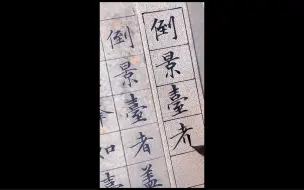 倒景臺者
倒景臺者蓋